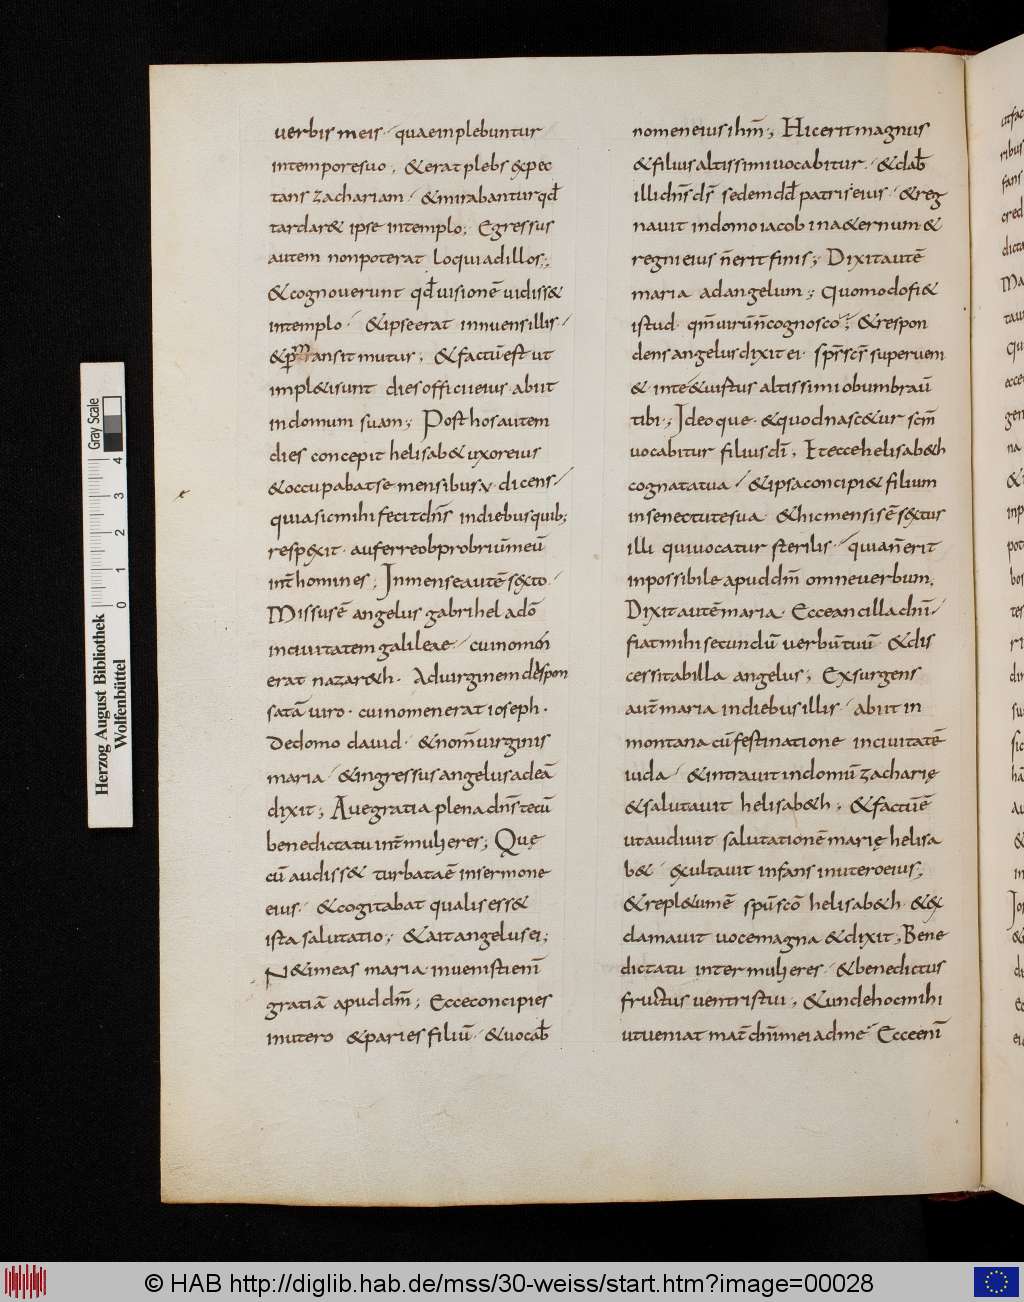 uerbis meis · quae inplebuntur
intempore suo ; & erat plebs exspec
tans zachariam · & mirabantur qđ
tardar& ipse intemplo ; Egressus
autem non poterat loqui ad illos ;
& cognouerunt qđ uisionē uidiss&
intemplo · & ipse erat innuens illis
ansit mutus ; & factū est ut
impl&i sunt dies officii eius · abiit
indomum suam ; Post hos autem
dies concepit helisab& uxor eius
& occupabat se mensibus · v · dicens
quia sic mihi fecit dn̄s indiebus quib;
respexit · auferre obprobriū meū
int̄ homines ; Inmense autē sexto ·
Missus ē angelus gabrihel a dō
inciuitatem galileae · cui nomen
erat nazar&h · Ad uirginem despon
satā uiro · cui nomen erat ioseph ·
de domo dauid · & nom̄ uirginis
maria · & ingressus angelus ad eā
dixit ; Aue gratia plena dn̄s tecū
benedicta tu int̄ mulieres ; Quę
cū audiss& turbata ē insermone
eius · & cogitabat qualis ess&
ista salutatio ; & ait angelus ei ;
N& imeas maria inuenisti enī
gratiā apud dm̄ ; Ecce concipies
inutero & paries filiū · & uocab̄
nomen eius ihm̄ ; Hic erit magnus
& filius altissimi uocabitur · & dab̄
illi dn̄s ds̄ sedem dd̄ patris eius · & reg
nauit indomo iacob in a&ernum · &
regni eius n̄ erit finis ; Dixit autē
maria ad angelum ; Quomodo fi&
istud · qm̄ uirū n̄ cognosco ; & respon
dens angelus dixit ei · sps̄ scs̄ superueni
& · inte · & uirtus altissimi obumbrau̅
tibi · ; Ideoque · & quod nasc&ur scm̄
uocabitur filius dī ; Et ecce helisab&h
cognata tua · & ipsa concipi& filium
insenectute sua · & hic mensis ē sextus
illi qui uocatur sterilis · quia n̄ erit
inpossibile apud dm̄ omne uerbum ;
Dixit autē maria · Ecce ancilla dnī
fiat mihi secundū uerbū tuū · & dis
cessit ab illa angelus ; Exsurgens
aut̄ maria indiebus illis · abiit in
montana cū festinatione inciuitatē
iuda · & intrauit indomū zacharię
& salutauit helisab&h ; & factū ē
ut audiuit salutationē marię helisa
b& · exultauit infans inutero eius ;
& repl&a um̄ē spū scō helisab&h · & ex
clamauit uoce magna & dixit ; Bene
dicta tu inter mulieres · & benedictus
fructus uentris tui ; & unde hoc mihi
ut ueniat mat̄ dnī mei ad me · Ecce enī
Herzog August Bibliothek
Wolfenbüttel
0 1 2 3 4
Gray Scale
© HAB http://diglib.hab.de/mss/30-weiss/start.htm?image=00028